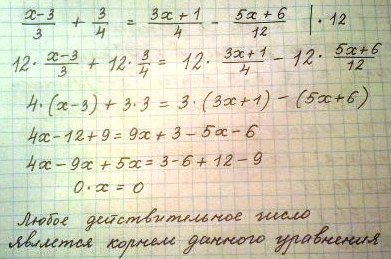 (x-3)/3 + 3/4 = (3x+1)/4 - (5x+6)/12 | · 12
12 · (x-3)/3 + 12 · 3/4 = 12 · (3x+1)/4 - 12 · (5x+6)/12
4 · (x-3) + 3 · 3 = 3 · (3x+1) - (5x+6)
4x - 12 + 9 = 9x + 3 - 5x - 6
4x - 9x + 5x = 3 - 6 + 12 - 9
0 · x = 0
Любое действительное число
является корнем данного уравнения